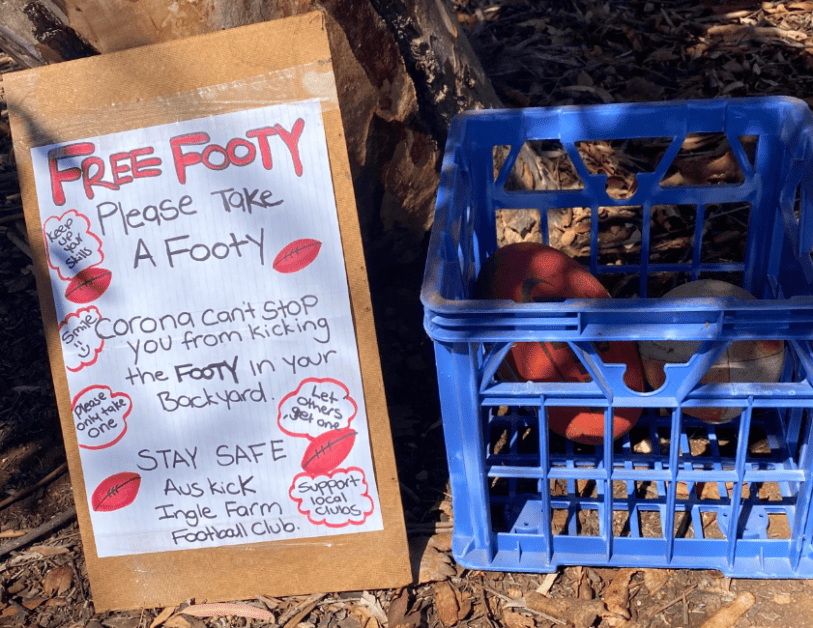 FREE FOOTY
Please Take
A Footy
Keep
up
your
skills
Smile
Corona can't stop
you from kicking
the FOOTY in your
Backyard.
Please
only take
one
Let
others
get one
STAY SAFE
Auskick
Ingle Farm
Football Club.
Support
local
clubs